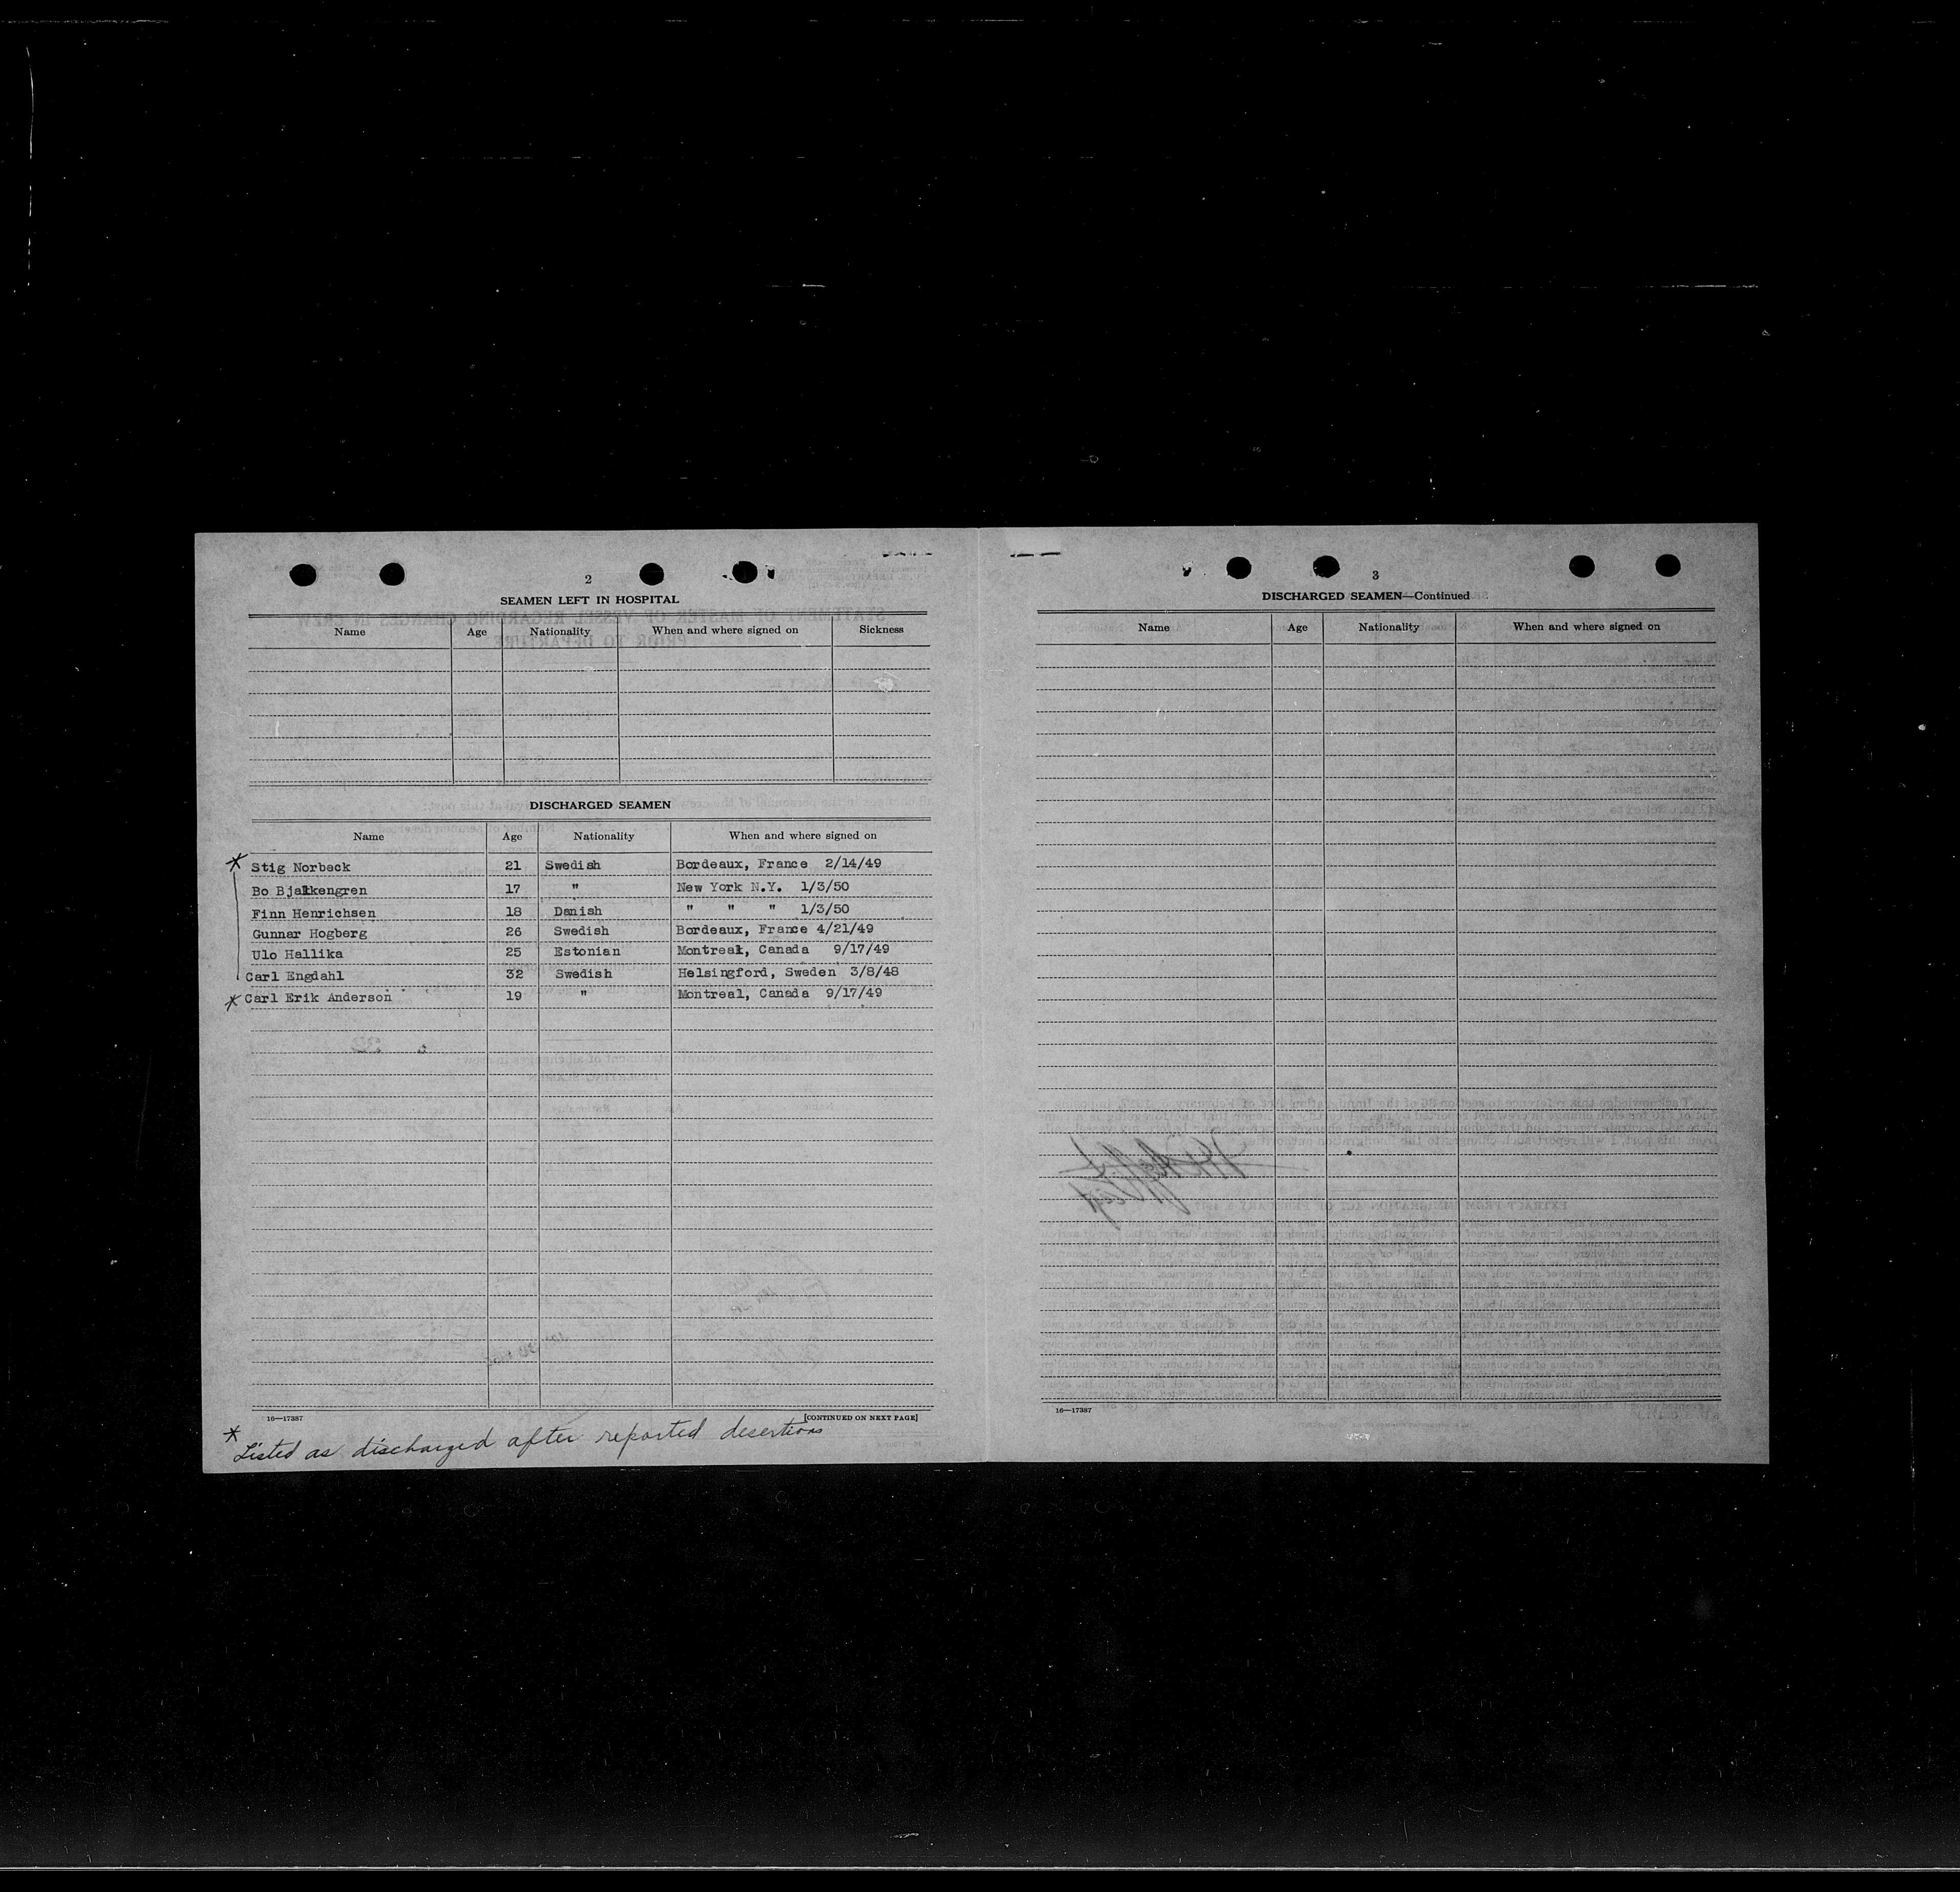 2
SEAMEN LEFT IN HOSPITAL
Name Age Nationality When and where signed on Sickness
DISCHARGED SEAMEN
Name Age Nationality When and where signed on
* Stig Norbeck 21 Swedish Bordeaux, France 2/14/49
Bo Bjalkengren 17 " New York N.Y. 1/3/50
Finn Henrichsen 18 Danish " " " 1/3/50
Gunnar Hogberg 26 Swedish Bordeaux, France 4/21/49
Ulo Hallika 25 Estonian Montreal, Canada 9/17/49
Carl Engdahl 32 Swedish Helsingford, Sweden 3/8/48
* Carl Erik Anderson 19 " Montreal, Canada 9/17/49
16—17387 [CONTINUED ON NEXT PAGE]
* Listed as discharged after reported desertions
3
DISCHARGED SEAMEN—Continued
Name Age Nationality When and where signed on
16—17387